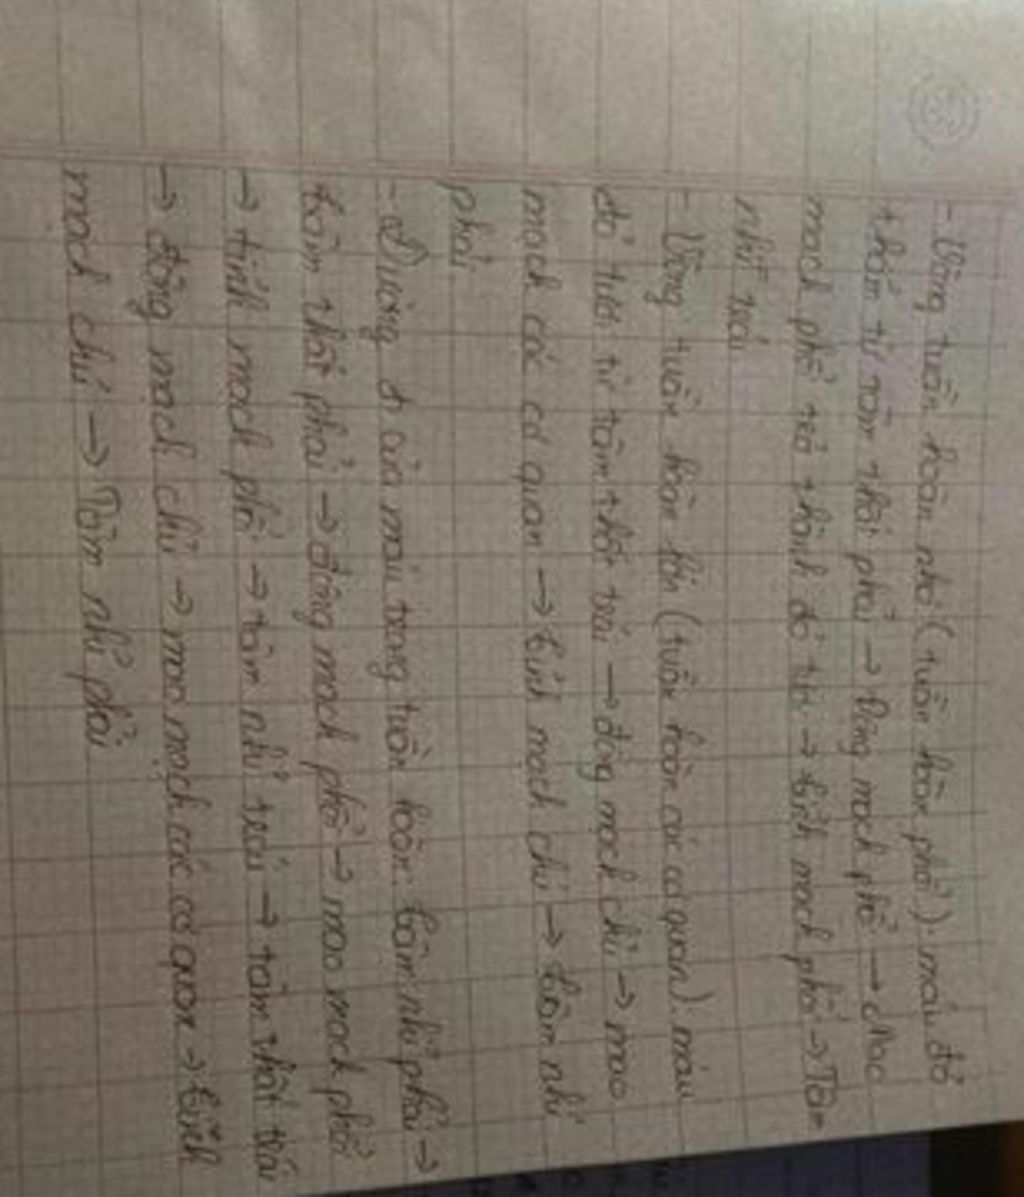 - Vòng tuần hoàn nhỏ (tuần hoàn phổi): máu đỏ
thẫm từ tâm thất phải → Động mạch phổi → Mao
mạch phổi trở thành đỏ tươi → tĩnh mạch phổi → Tâm
nhĩ trái
- Vòng tuần hoàn lớn (tuần hoàn các cơ quan): máu
đỏ tươi từ tâm thất trái → động mạch chủ → mao
mạch các cơ quan → tĩnh mạch chủ → tâm nhĩ
phải
- Đường đi của máu trong tuần hoàn: tâm nhĩ phải →
tâm thất phải → động mạch phổi → mao mạch phổi
→ tĩnh mạch phổi → tâm nhĩ trái → tâm thất trái
→ động mạch chủ → mao mạch các cơ quan → tĩnh
mạch chủ → Tâm nhĩ phải